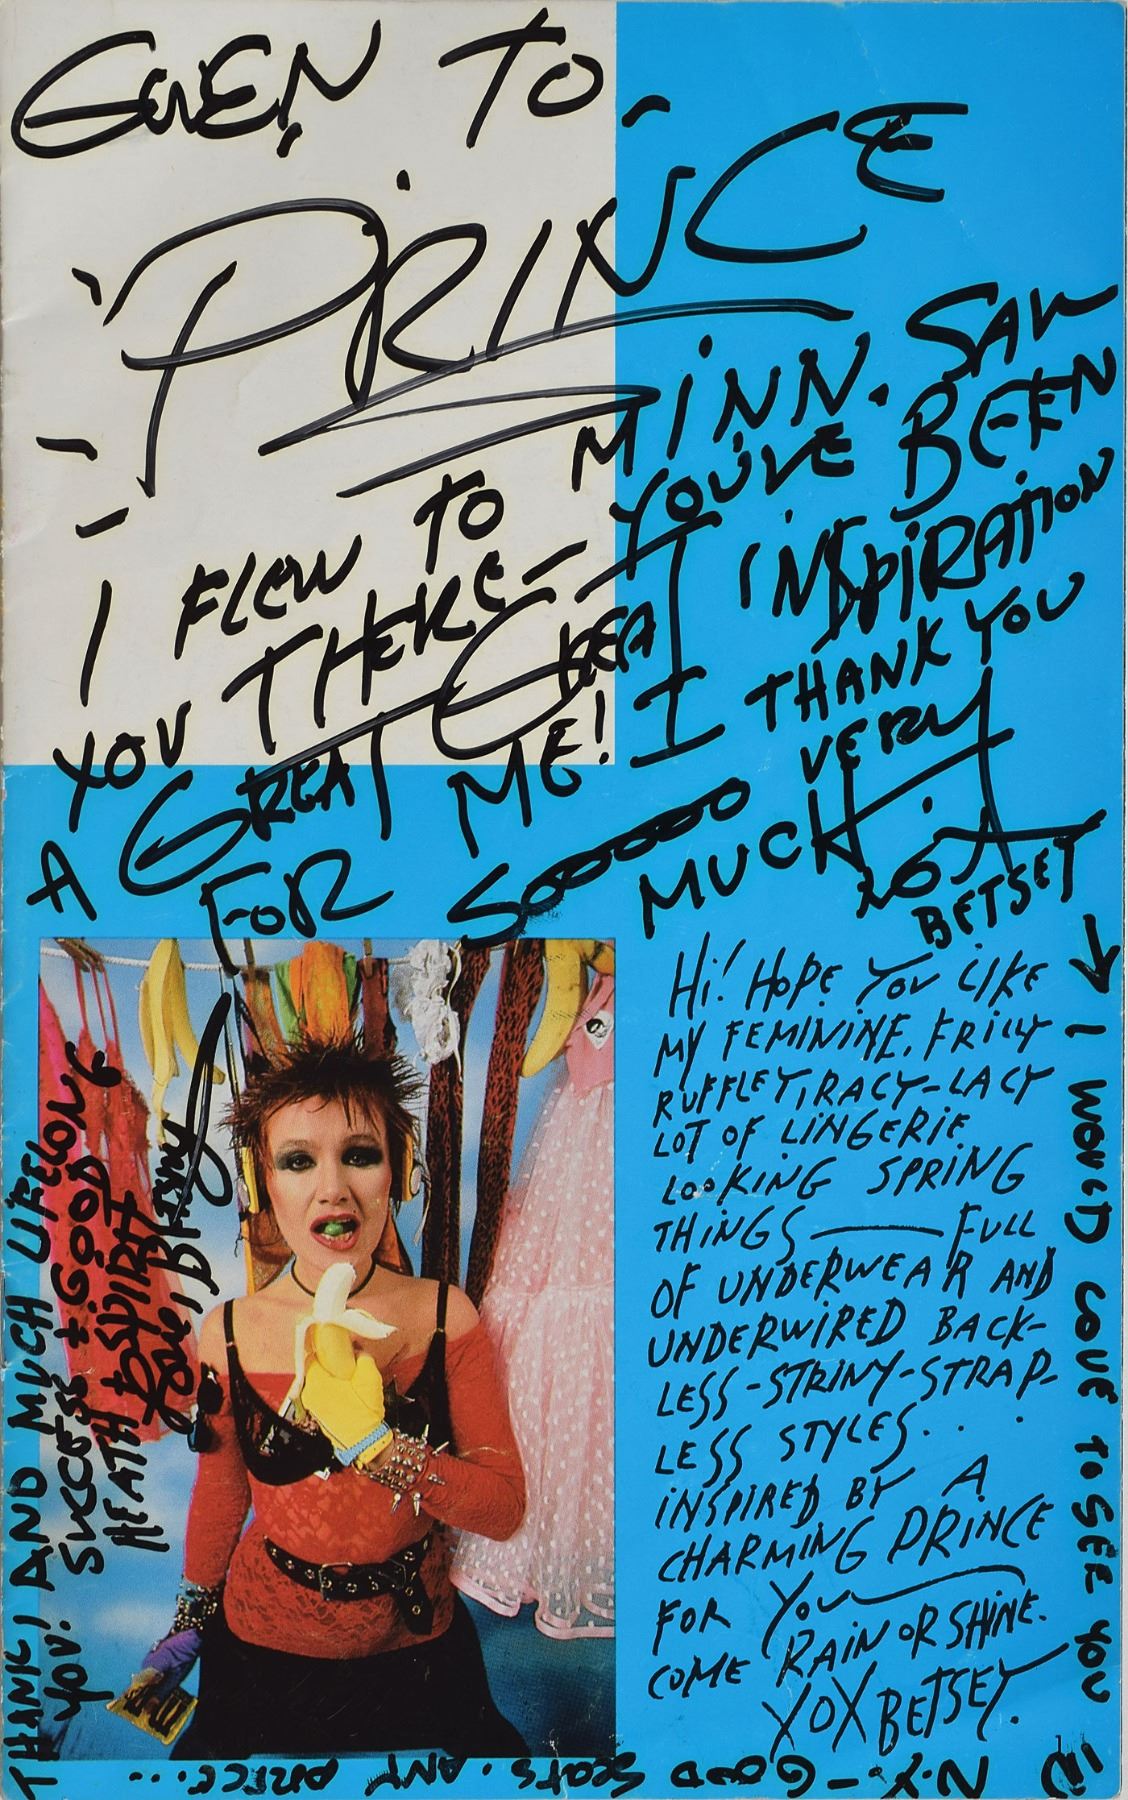 GIVEN TO
"PRINCE"
- I FLEW TO MINN. SAW
YOU THERE - YOU'VE BEEN
A GREAT GREAT INSPIRATION
FOR ME! I THANK YOU
SOOOOO VERY
MUCH
BETSEY
Hi! HOPE YOU LIKE
MY FEMININE, FRILLY
RUFFLEY, RACY-LACY
LOT OF LINGERIE
LOOKING SPRING
THINGS — FULL
OF UNDERWEAR AND
UNDERWIRED BACK-
LESS-STRINY-STRAP-
LESS STYLES...
INSPIRED BY A
CHARMING PRINCE
FOR YOU
COME RAIN OR SHINE.
XOX BETSEY.
→ I WOULD LOVE TO SEE YOU
IN
N.Y. - GOOD SEATS. ANY PRICE...
THANK, AND MUCH LIFELONG
YOU! SUCCESS + GOOD
HEATH + SPIRIT